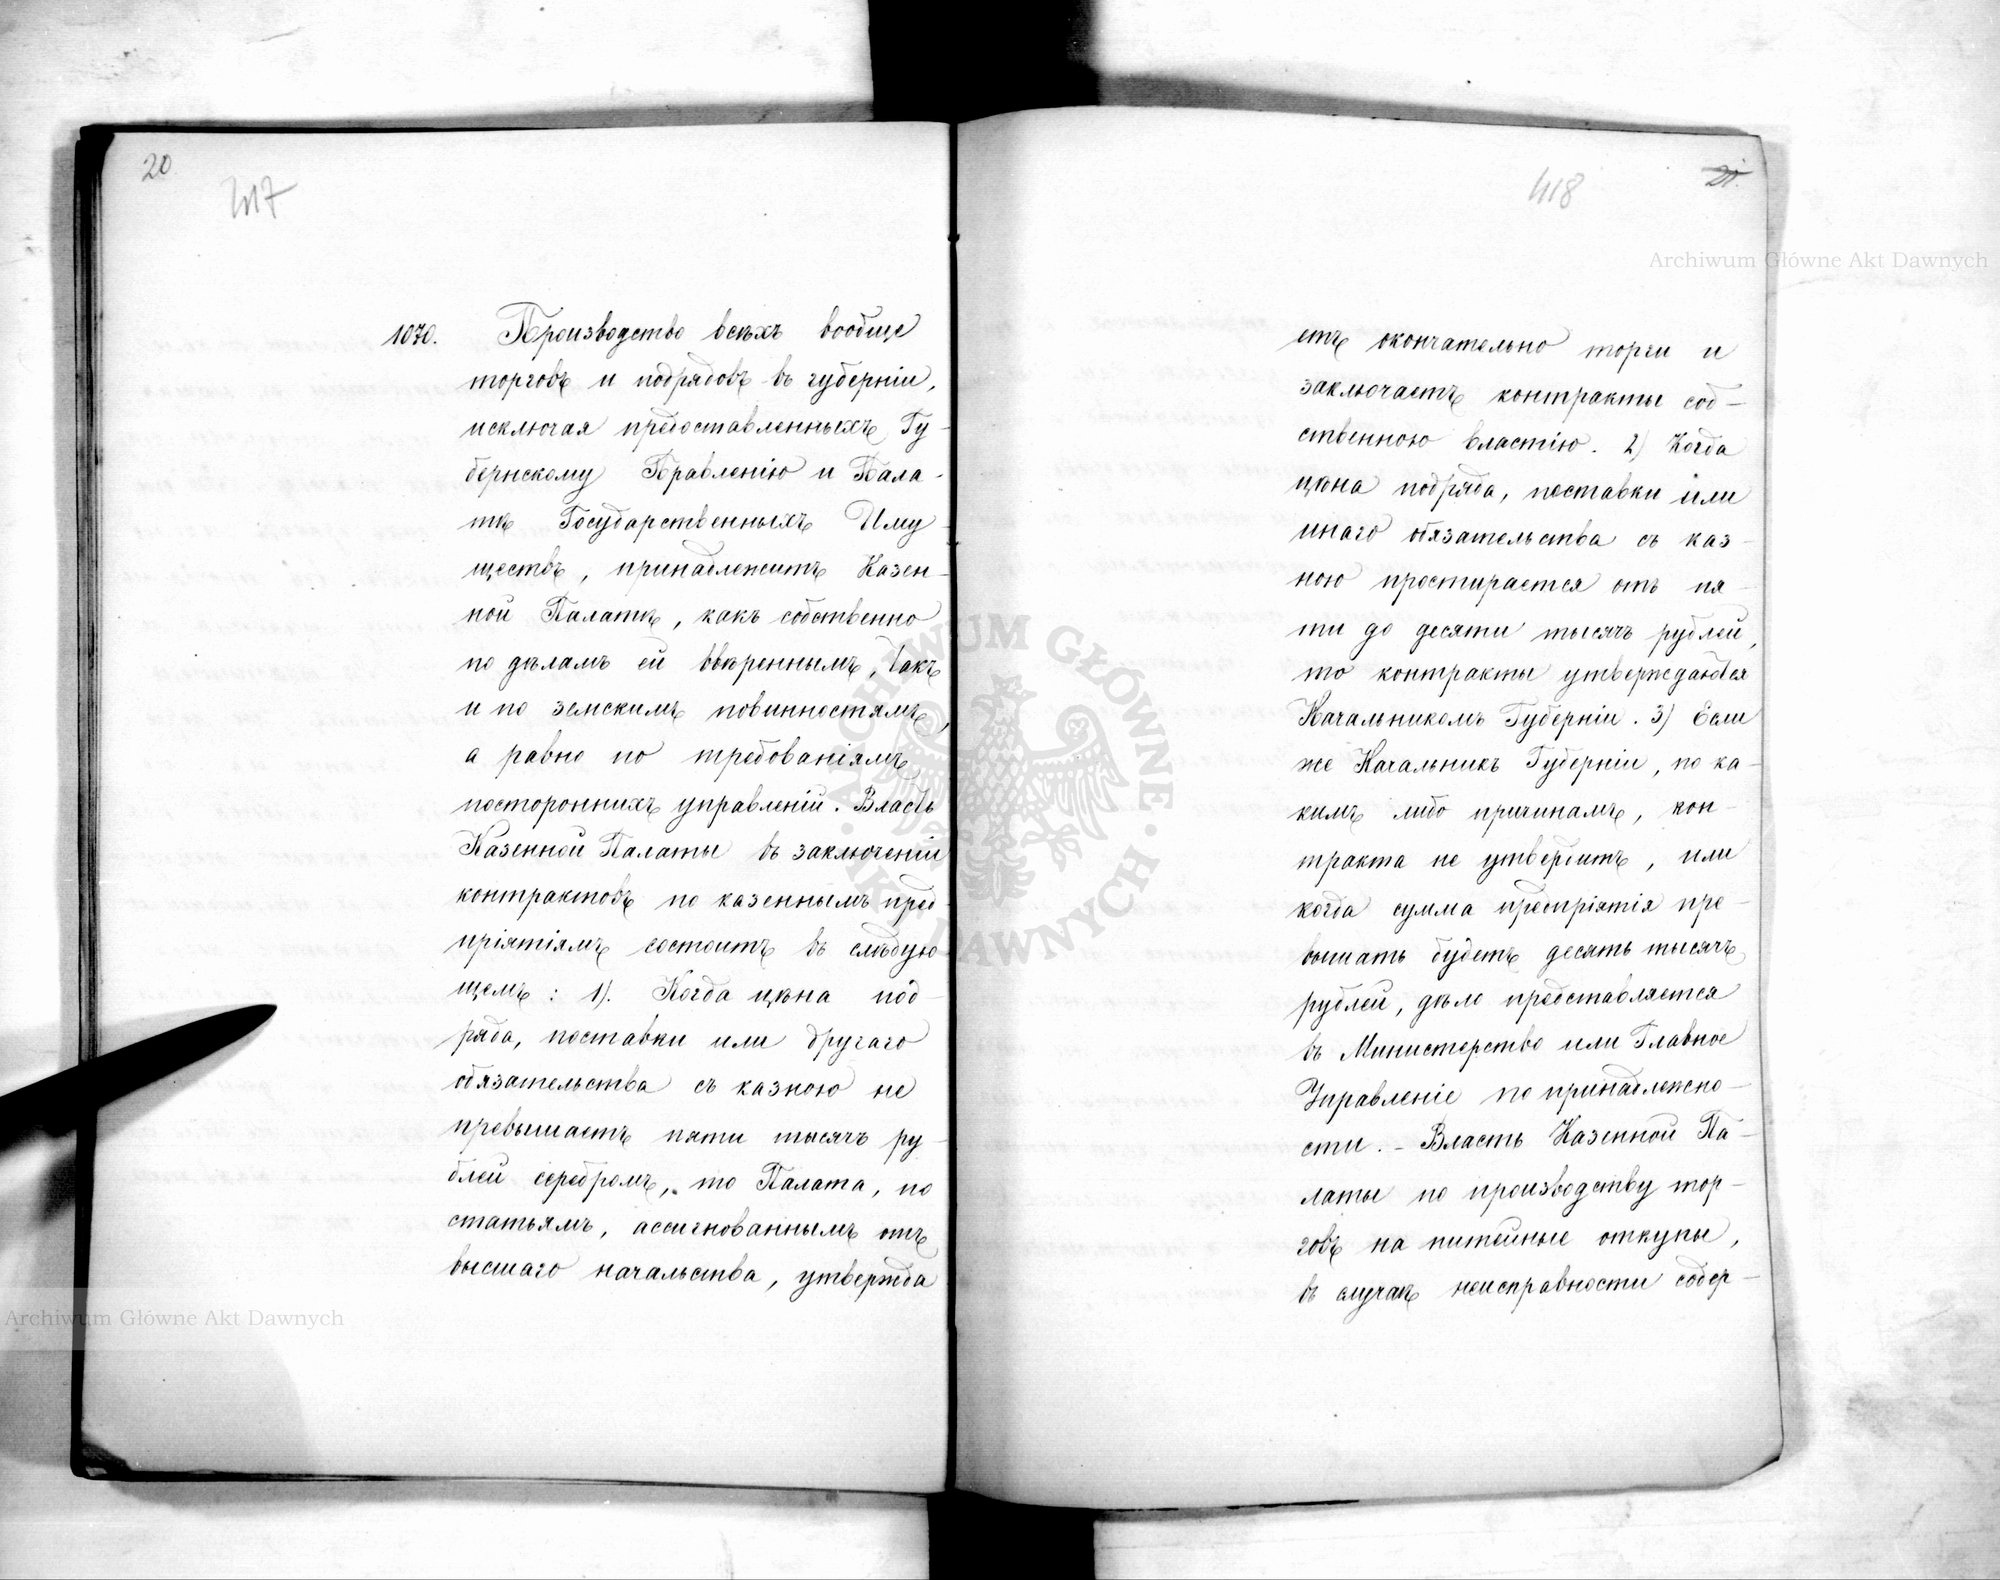 20
417
1070. Производство всѣхъ вообще
торговъ и подрядовъ въ губерніи,
исключая предоставленныхъ Гу-
бернскому Правленію и Пала-
тѣ Государственныхъ Иму-
ществъ, принадлежитъ Казен-
ной Палатѣ, какъ собственно
по дѣламъ ей ввѣреннымъ, такъ
и по земскимъ повинностямъ,
а равно по требованіямъ
постороннихъ управленій. Власть
Казенной Палаты въ заключеніи
контрактовъ по казеннымъ пред-
пріятіямъ состоитъ въ слѣдую-
щемъ: 1). Когда цѣна под-
ряда, поставки или другаго
обязательства съ казною не
превышаетъ пяти тысячъ ру-
блей серебромъ, то Палата, по
статьямъ, ассигнованнымъ отъ
высшаго начальства, утвержда
418
21.
етъ окончательно торги и
заключаетъ контракты соб-
ственною властію. 2) Когда
цѣна подряда, поставки или
инаго обязательства съ каз-
ною простирается отъ пя-
ти до десяти тысячъ рублей,
то контракты утверждаются
Начальникомъ Губерніи. 3) Если
же Начальникъ Губерніи, по ка-
кимъ либо причинамъ, кон-
тракта не утвердитъ, или
когда сумма предпріятія пре-
вышать будетъ десять тысячъ
рублей, дѣло представляется
въ Министерство или Главное
Управленіе по принадлежно-
сти. - Власть Казенной Па-
латы по производству тор-
говъ на питейные откупы,
въ случаѣ неисправности содер-
Archiwum Główne Akt Dawnych
Archiwum Główne Akt Dawnych
ARCHIWUM GŁÓWNE · AKT DAWNYCH ·